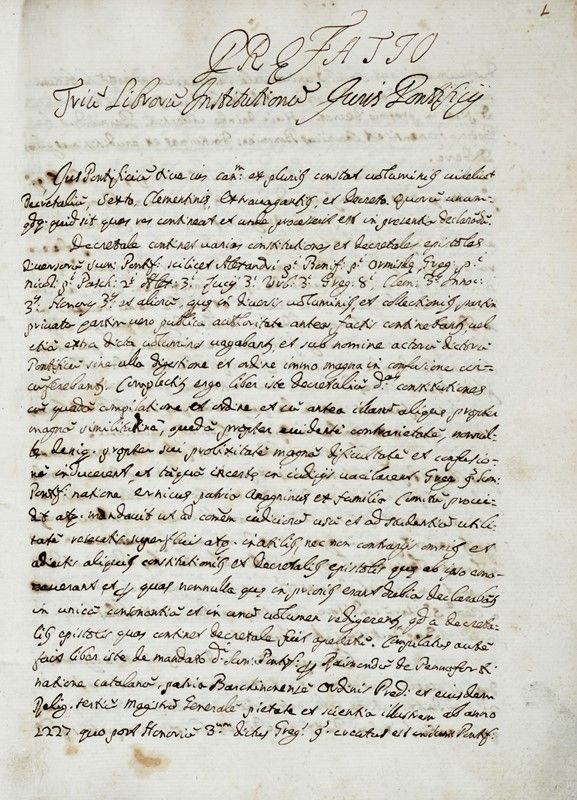 1
PREFATIO
Triũ Librorũ Institutionũ Juris Pontificij
Jus Pontificiũ sive ius canm: ex pluriȝ constat voluminiȝ videlicet
Decretaliũ, Sexto, Clementiniȝ, Extravagantiȝ, et Decreto. Quorũ unum-
qdq. quid sit quas res contineat et unde processerit est in presentia declarãdũ.
Decretale continet varias constitutiones et decretales epistolas
diversorũ sum: Pontif: scilicet Alexandri pi. Bonif: pi. Ormisdę, Greg: pi.
nicol: pi. Pasch: 2i. Alex: 3i. Lucij 3i. Urb: 3i. Greg: 8i. Clem: 3i. Innoc:
3ij. Honorij 3ij. et aliorũ, quę in diversis voluminiȝ et collectioniȝ partim
privata partim vero publica authoritate antea factis continebantȝ, vel
etiã extra dicta volumina vagabantȝ, et sub nomine actorũ dictorũ
Pontificũ sine ulla digestione et ordine immo magna in confusione cir-
cũferebantȝ. Complectiȝ ergo liber iste decretaliũ das constitutiones
cũ quadã compilatione et ordine et cũ antea illarũ aliquę propter
magnã similitudinẽ, quędã propter evidentẽ contrarietatẽ, nonnul-
lę deniq. propter sui prolixitatẽ magnã dificultatẽ et confusio-
nẽ inducerent, et tãquã incerte in iudiciȝ vacilarent. Greg: 9. sum:
Pontif: natione ernicus, patria Anagninus et familia Comitũ provi-
dit atq. mandavit ut ad comẽm iudiciorũ usũ et ad studentiũ utili-
tatẽ resecatis superfluis atq. inutiliȝ nec non contrariȝ omniȝ et
adiectis aliquiȝ constitutioniȝ et decretaliȝ epistoliȝ quę ab ipso ema-
naverant et p quas nonnulla quę in prioriȝ erant dubia declarabãtȝ
in unicã consonantiã et in unũ volumen redigerentȝ, qd a decreta-
liȝ epistolis quas continet decretale fuit apellatũ. Compilatus autẽ
fuit liber iste de mandato di. sum: Pontif: p Raimondũ de Pennafort
natione catalanũ, patria Barchinonensẽ Ordinis Pred: et eiusdem
Relig: tertiũ Magistrũ Generalẽ pietate et scientia illustrem ab anno
1227 quo post Honoriũ 3um dictus Greg: 9. creatus est in sum: Pontif: